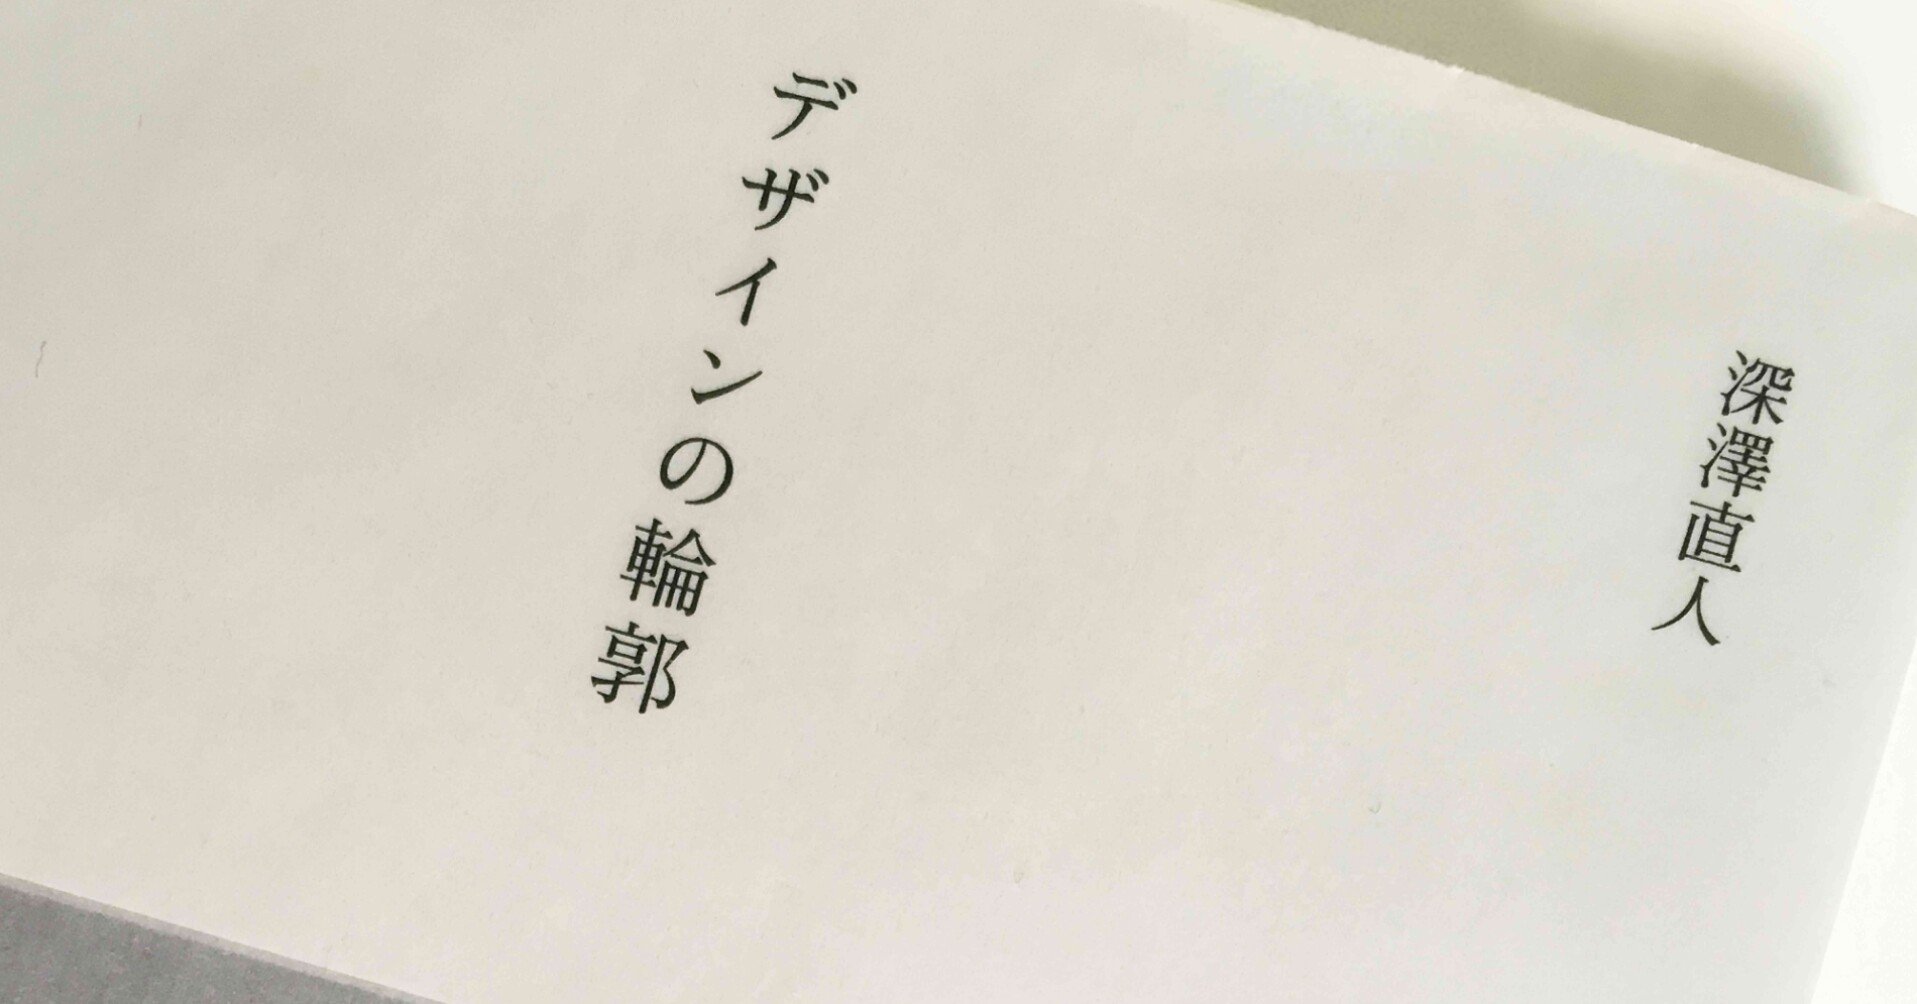 深澤直人
デザインの輪郭